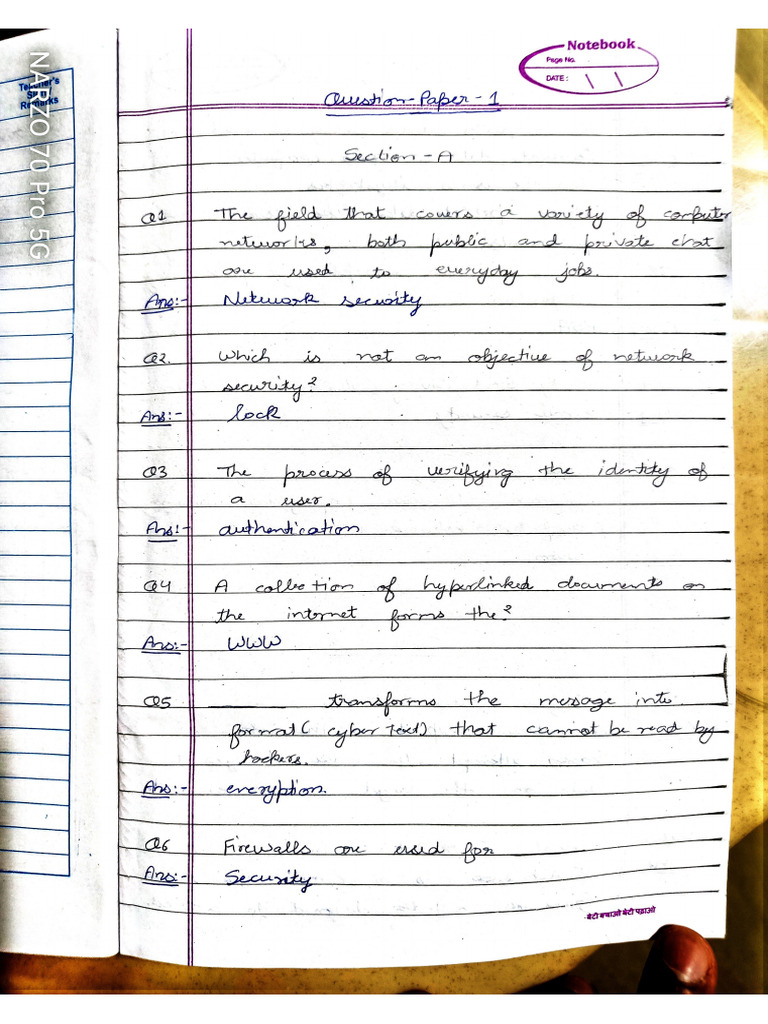 Notebook
Page No.
DATE : \ \
Teacher's
Sign
Remarks
NARZO 70 Pro 5G
Question-Paper-1
Section-A
Q1 The field that covers a variety of computer
networks, both public and private that
are used to everyday jobs.
Ans:- Network security
Q2. Which is not an objective of network
security?
Ans:- lock
Q3 The process of verifying the identity of
a user.
Ans:- authentication
Q4 A collection of hyperlinked documents on
the internet forms the?
Ans:- WWW
Q5 ________ transforms the message into
format( cyber text) that cannot be read by
hockers.
Ans:- encryption.
Q6 Firewalls are used for
Ans:- Security
बेटी बचाओ बेटी पढ़ाओ